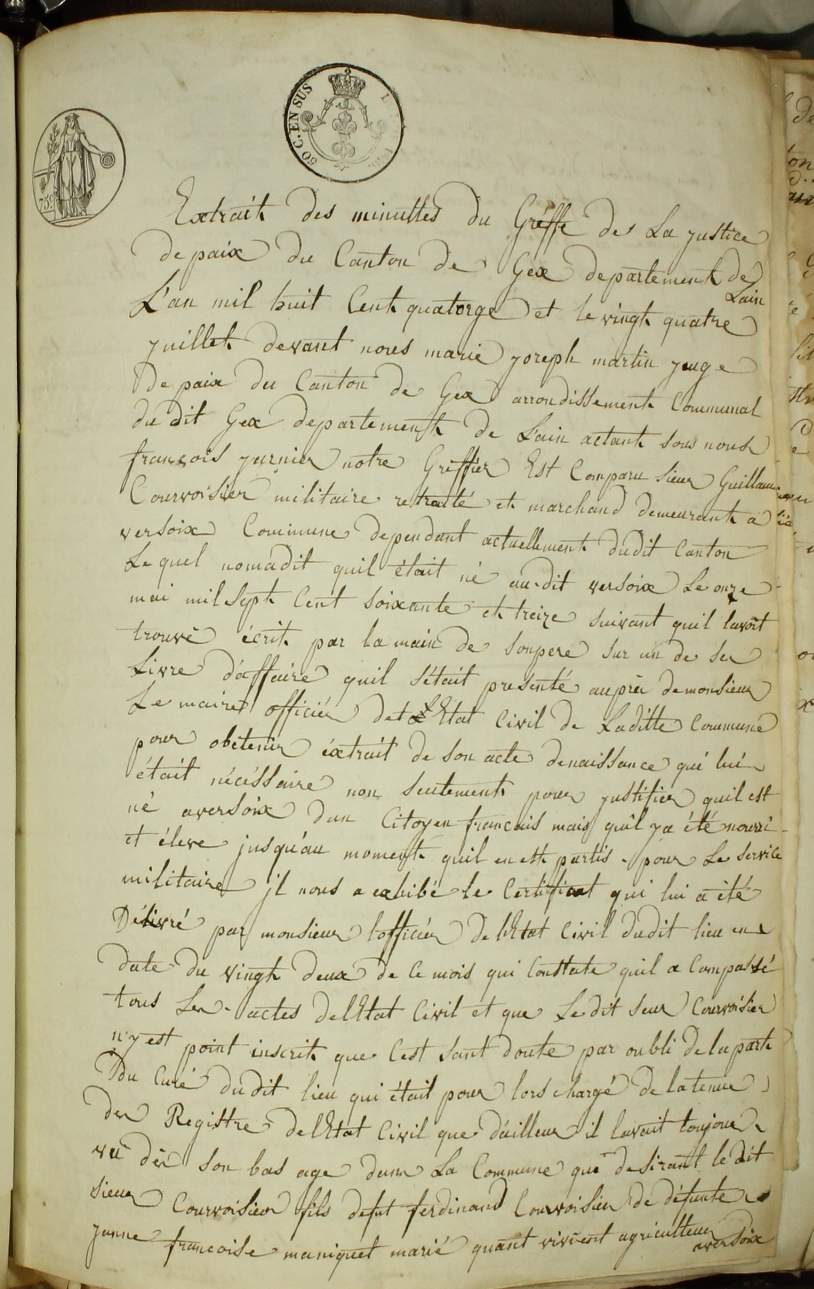 50 C. EN SUS
75c
Extrait des minuttes du Greffe de La justice
de paix du Canton de Gex departement de
Lain
L'an mil huit Cent quatorze et le vingt quatre
juillet devant nous marie joseph martin juge
De paix du Canton de Gex arrondissement Communal
du dit Gex departement de Lain actant sous nous
françois jurnier notre Greffier Est Comparu sieur Guillaume
Courvoisier militaire retraité et marchand demeurant a
versoix Commune dependant actuellement dudit Canton
Lequel nomadit quil était né au-dit versoix Le onze
mai mil Sept Cent soixante et treize suivant quil lavoit
trouvé écrit par la main de sonpere sur un de ses
Livre d'affaire quil s'était presenté auprès demonsieur
Le maire officier de L'Etat Civil de Laditte Commune
pour obetenir éxtrait de son acte denaissance qui lui
était nécéssaire non seulement pour justifier quil est
né aversoix dun Citoyen francais mais quil ya été nourri
et élevé jusqu'au moment quil en est partis pour Le Service
militaire jl nous a exhibé le Certificat qui lui a été
Délivré par monsieur l'officier De l'Etat Civil dudit lieu en
date du vingt deux de Ce mois qui Constate quil a Compassé
tous Les actes del'Etat Civil et que Le dit Seur Courvoisier
n'y est point inscrit que Cest sant doute par oubli de la part
Du Curé dudit lieu qui était pour lors chargé de la tenue
des Registre de l'Etat Civil que d'ailleur il lavait toujour
vu dès son bas age dans La Commune que desirant le dit
sieur Courvoisier fils defut ferdinand Courvoisier de défunte
janne francoise maniquet marié quant vivoient agriculteur
aversoix